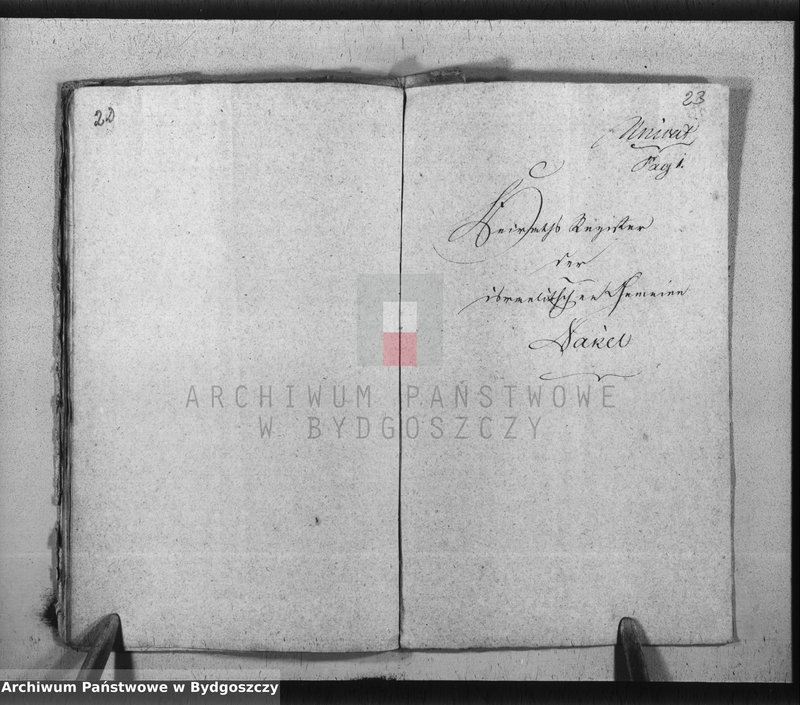 22
23
Unicat
Pag 1.
Heiraths Register
der
israelitischen Gemeine
Nakel
ARCHIWUM PAŃSTWOWE
W BYDGOSZCZY
Archiwum Państwowe w Bydgoszczy